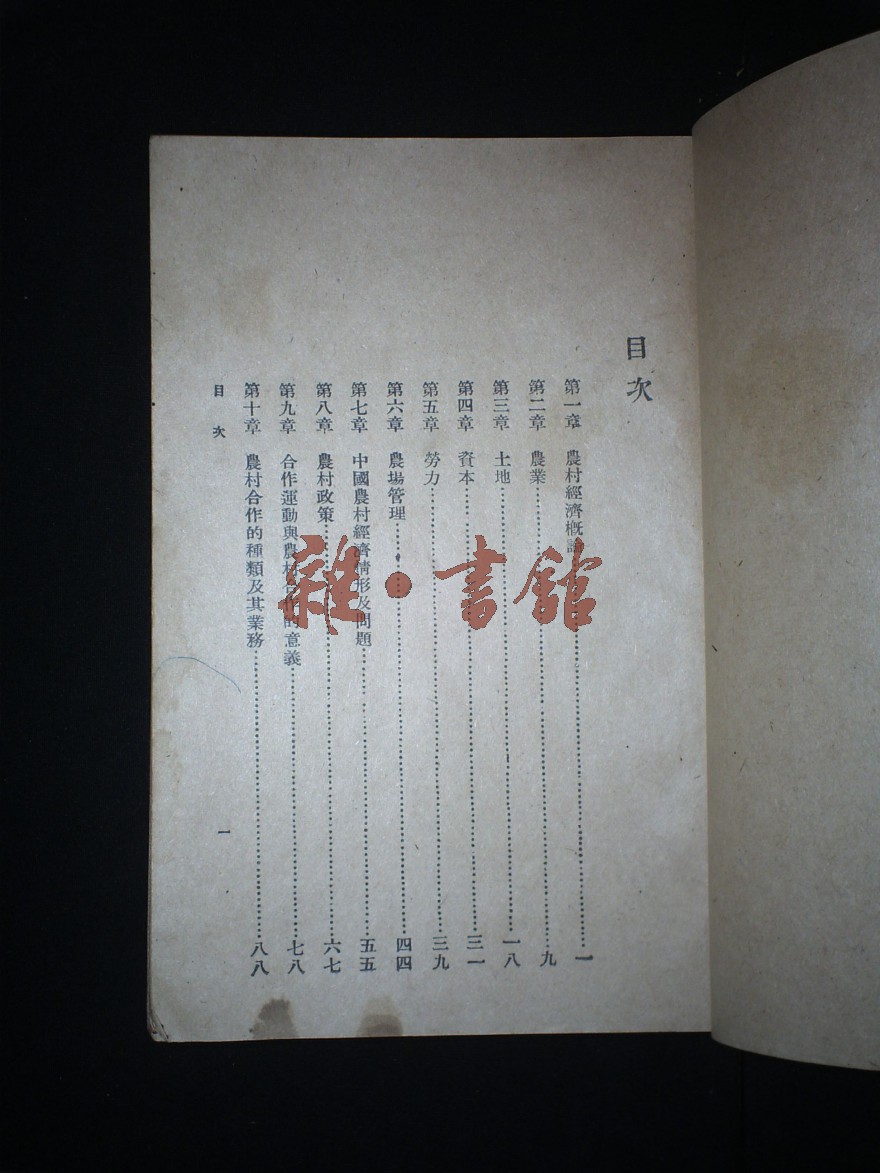 目次
第一章　農村經濟概論……一
第二章　農業……九
第三章　土地……一八
第四章　資本……三一
第五章　勞力……三九
第六章　農場管理……四四
第七章　中國農村經濟情形及問題……五五
第八章　農村政策……六七
第九章　合作運動與農村合作的意義……七八
第十章　農村合作的種類及其業務……八八
目次
一
雜・書館